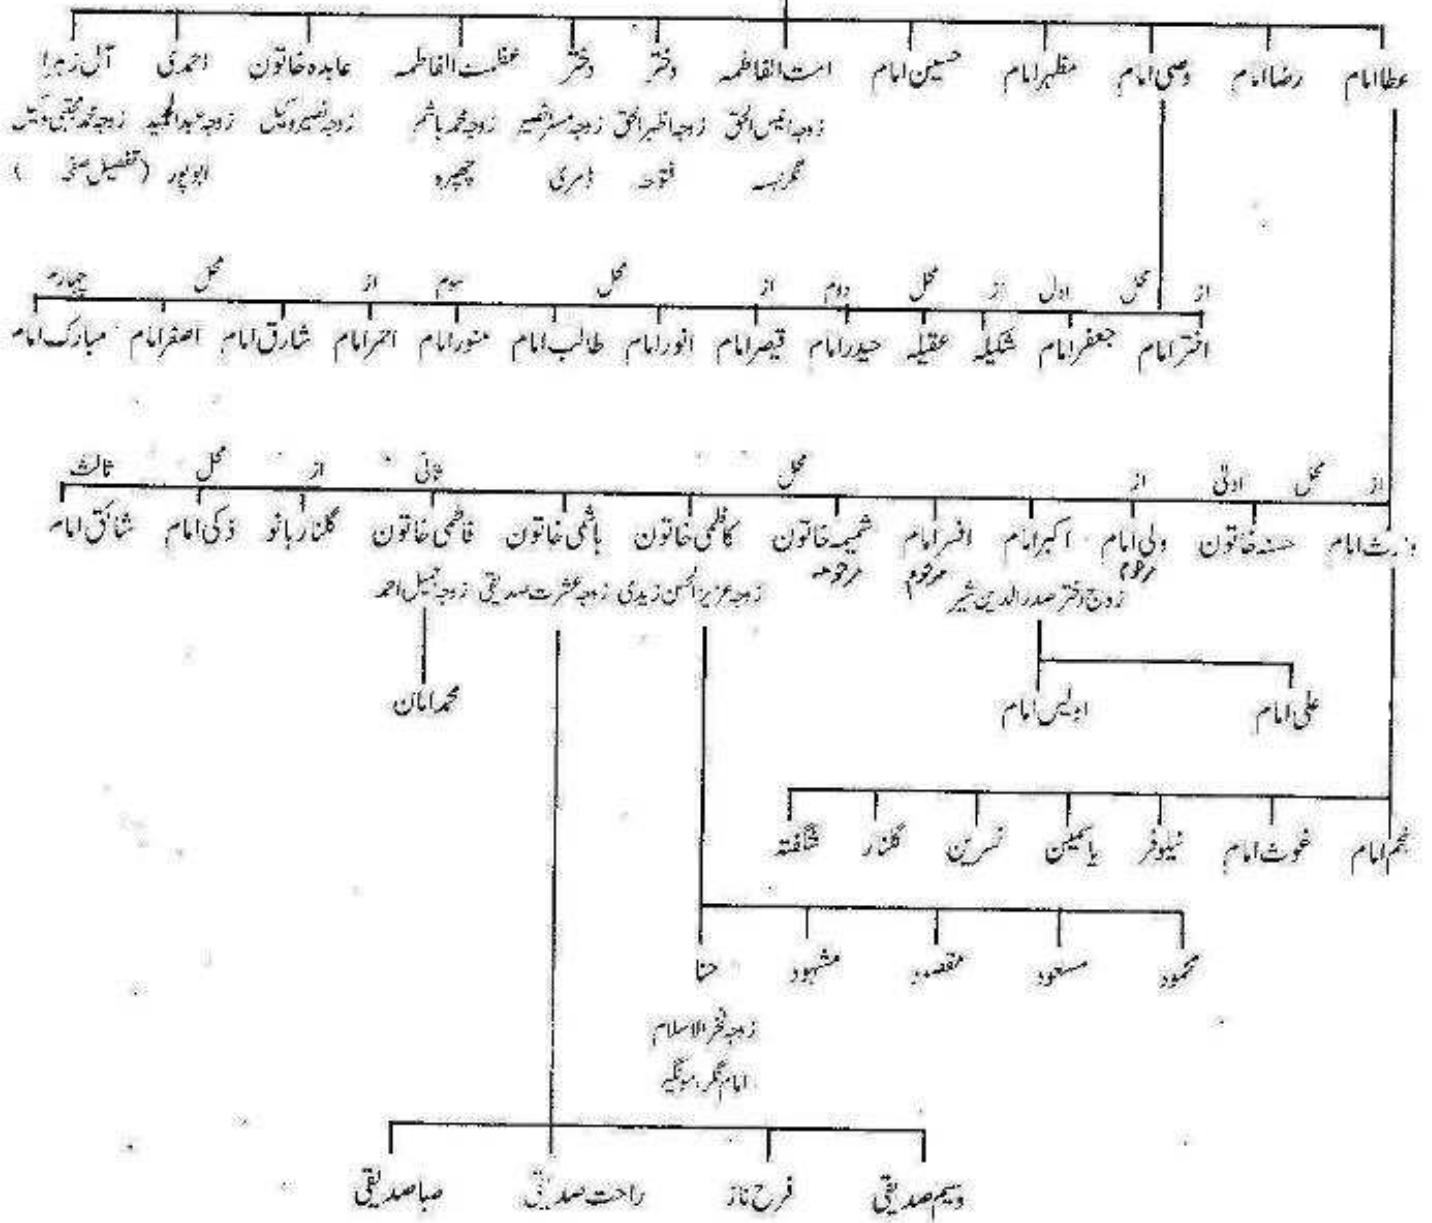 عطا امام رضا امام وصی امام مظہر امام حسین امام امت الفاطمہ دختر دختر عظمت الفاطمہ عابدہ خاتون احمدی آل زہرا
زوجہ انیس الحق زوجہ اظہر الحق زوجہ مسٹر نصیر زوجہ محمد ہاشم زوجہ نصیر وکیل زوجہ عبدالحمید زوجہ محمد مجتبیٰ وکیل
فتوحہ ڈمری چھپرہ ابوپور (تفصیل صفحہ )
از محل اولیٰ از محل دوم از محل سوم از محل چہارم
اختر امام جعفر امام شکیلہ عقیلہ حیدر امام قیصر امام انور امام طالب امام منور امام احمر امام شارق امام اصغر امام مبارک امام
از محل اولیٰ از محل ثانی از محل ثالث
وارث امام حسنہ خاتون ولی امام اکبر امام افسر امام شمیمہ خاتون کاظمی خاتون ہاشمی خاتون فاطمی خاتون گلنار بانو ذکی امام شائق امام
مرحوم مرحوم مرحومہ
زوج دختر صدرالدین شیر زوجہ عزیز الحسن زیدی زوجہ عشرت صدیقی زوجہ جمیل احمد
علی امام اویس امام محمد امان
نجم امام غوث امام نیلوفر یاسمین نسرین گلنار شگفتہ
محمود مسعود مقصود مشہود حنا
زوجہ فخر الاسلام
امام نگر، مونگیر
وسیم صدیقی فرح ناز راحت صدیقی صبا صدیقی